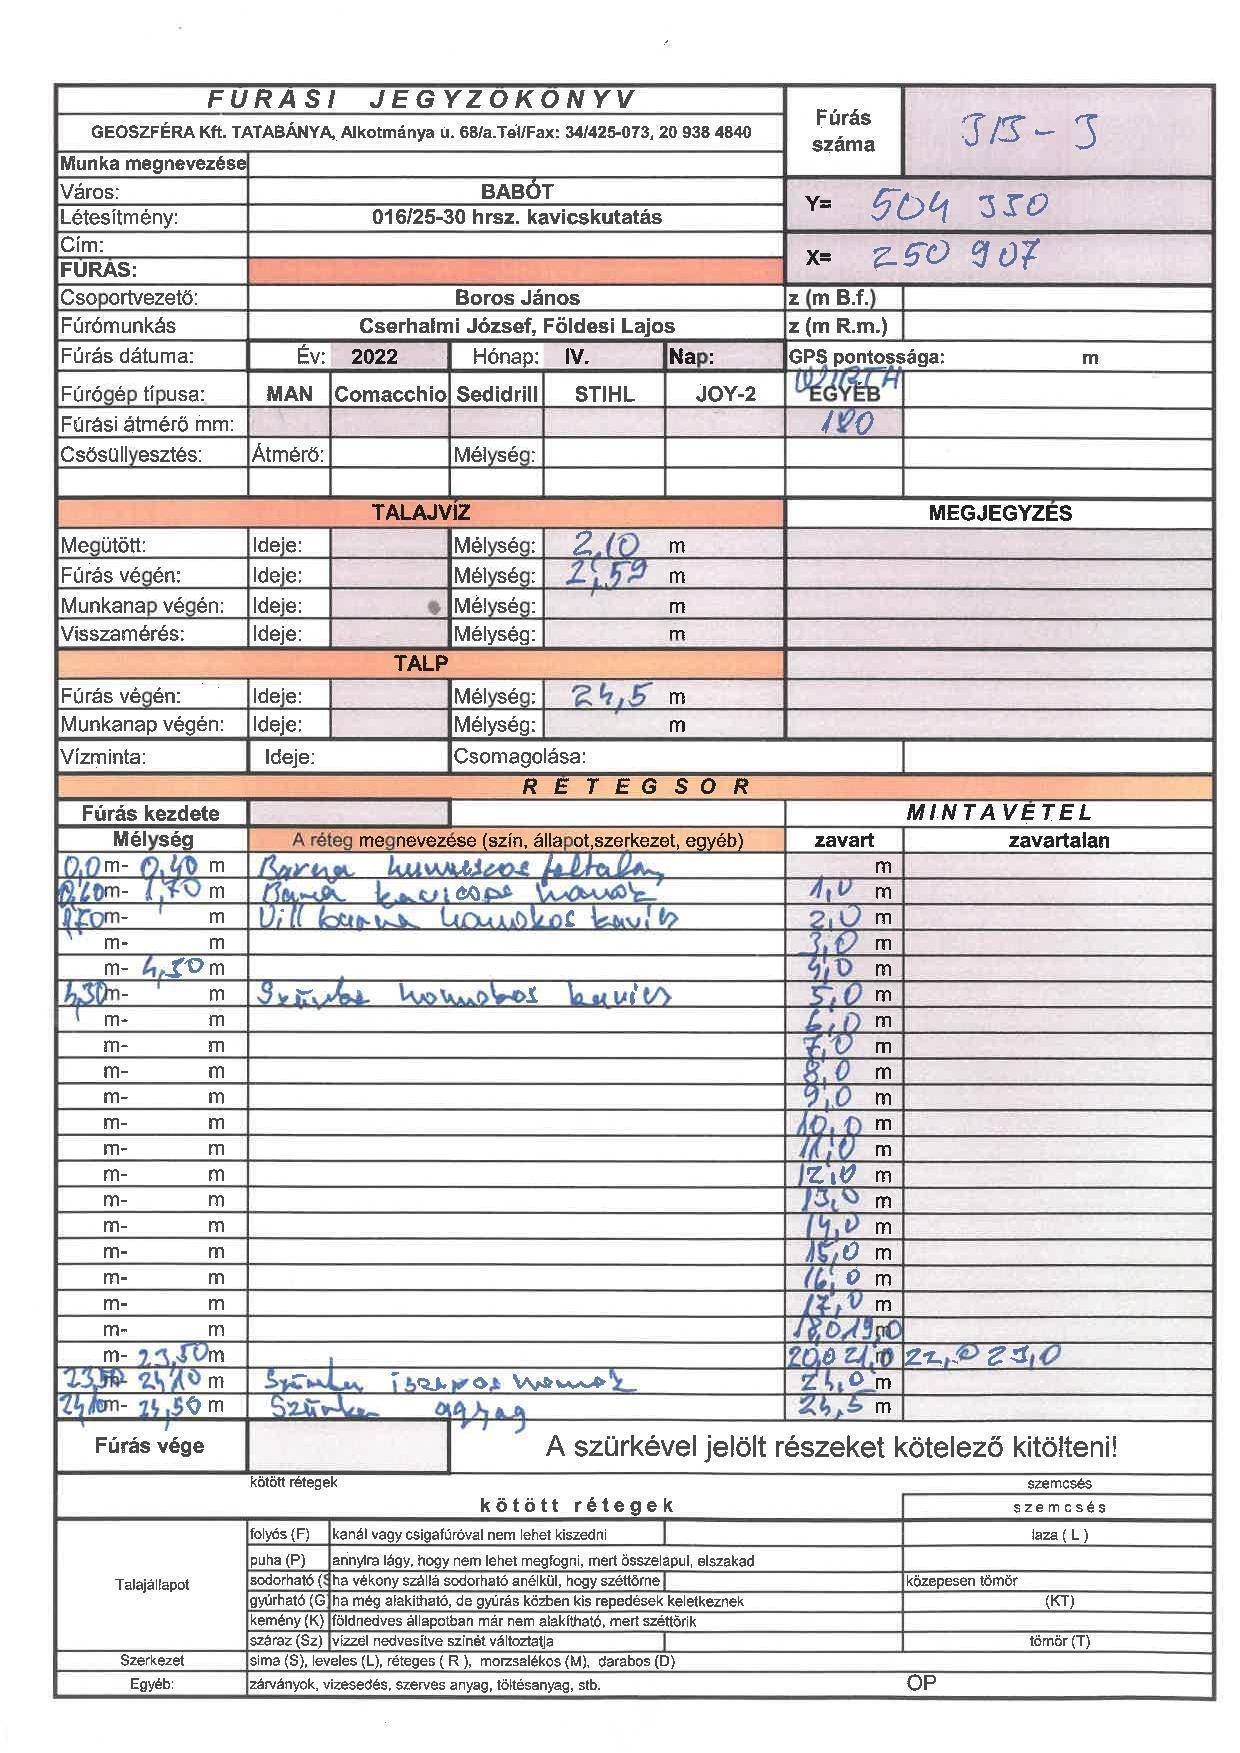 FÚRÁSI JEGYZŐKÖNYV
GEOSZFÉRA Kft. TATABÁNYA, Alkotmánya u. 68/a.Tel/Fax: 34/425-073, 20 938 4840
Fúrás száma
Munka megnevezése
Város: BABÓT
Y= 504 330
Létesítmény: 016/25-30 hrsz. kavicskutatás
Cím:
X= 250 907
FÚRÁS:
Csoportvezető: Boros János z (m B.f.)
Fúrómunkás Cserhalmi József, Földesi Lajos z (m R.m.)
Fúrás dátuma: Év: 2022 Hónap: IV. Nap: GPS pontossága: m
WIRTH
Fúrógép típusa: MAN Comacchio Sedidrill STIHL JOY-2 EGYÉB
Fúrási átmérő mm: 180
Csősüllyesztés: Átmérő: Mélység:
TALAJVÍZ MEGJEGYZÉS
Megütött: Ideje: Mélység: 2,10 m
Fúrás végén: Ideje: Mélység: 2,59 m
Munkanap végén: Ideje: Mélység: m
Visszamérés: Ideje: Mélység: m
TALP
Fúrás végén: Ideje: Mélység: 24,5 m
Munkanap végén: Ideje: Mélység: m
Vízminta: Ideje: Csomagolása:
RÉTEGSOR
Fúrás kezdete MINTAVÉTEL
Mélység A réteg megnevezése (szín, állapot,szerkezet, egyéb) zavart zavartalan
0,0m- 0,40 m Barna humuszos feltalaj m
0,40m- 1,70 m Barna kavicsos homok 1,0 m
1,70m- m Vil barna homokos kavics 2,0 m
m- m 3,0 m
m- 4,30 m 4,0 m
4,30m- m Szürke homokos kavics 5,0 m
m- m 6,0 m
m- m 7,0 m
m- m 8,0 m
m- m 9,0 m
m- m 10,0 m
m- m 11,0 m
m- m 12,0 m
m- m 13,0 m
m- m 14,0 m
m- m 15,0 m
m- m 16,0 m
m- m 17,0 m
m- m 18,0 19,0 m
m- 23,50 m 20,0 21,0 m 22,0 23,0
23,50 m- 24,10 m Szürke iszapos homok 24,0 m
24,10m- 24,50 m Szürke agyag 24,5 m
Fúrás vége A szürkével jelölt részeket kötelező kitölteni!
kötött rétegek szemcsés
kötött rétegek szemcsés
Talajállapot
folyós (F) kanál vagy csigafúróval nem lehet kiszedni laza ( L )
puha (P) annyira lágy, hogy nem lehet megfogni, mert összelapul, elszakad
sodorható (S ha vékony szállá sodorható anélkül, hogy széttörne közepesen tömör
gyúrható (G ha még alakítható, de gyúrás közben kis repedések keletkeznek (KT)
kemény (K) földnedves állapotban már nem alakítható, mert széttörik
száraz (Sz) vízzel nedvesítve színét változtatja tömör (T)
Szerkezet sima (S), leveles (L), réteges ( R ), morzsalékos (M), darabos (D)
Egyéb: zárványok, vizesedés, szerves anyag, töltésanyag, stb. OP